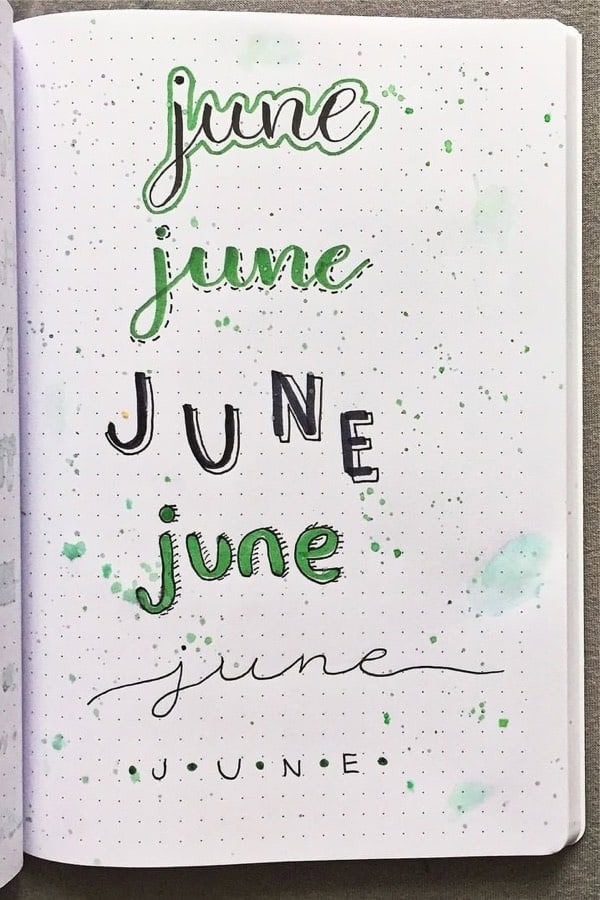 june
june
JUNE
june
june
•J•U•N•E•